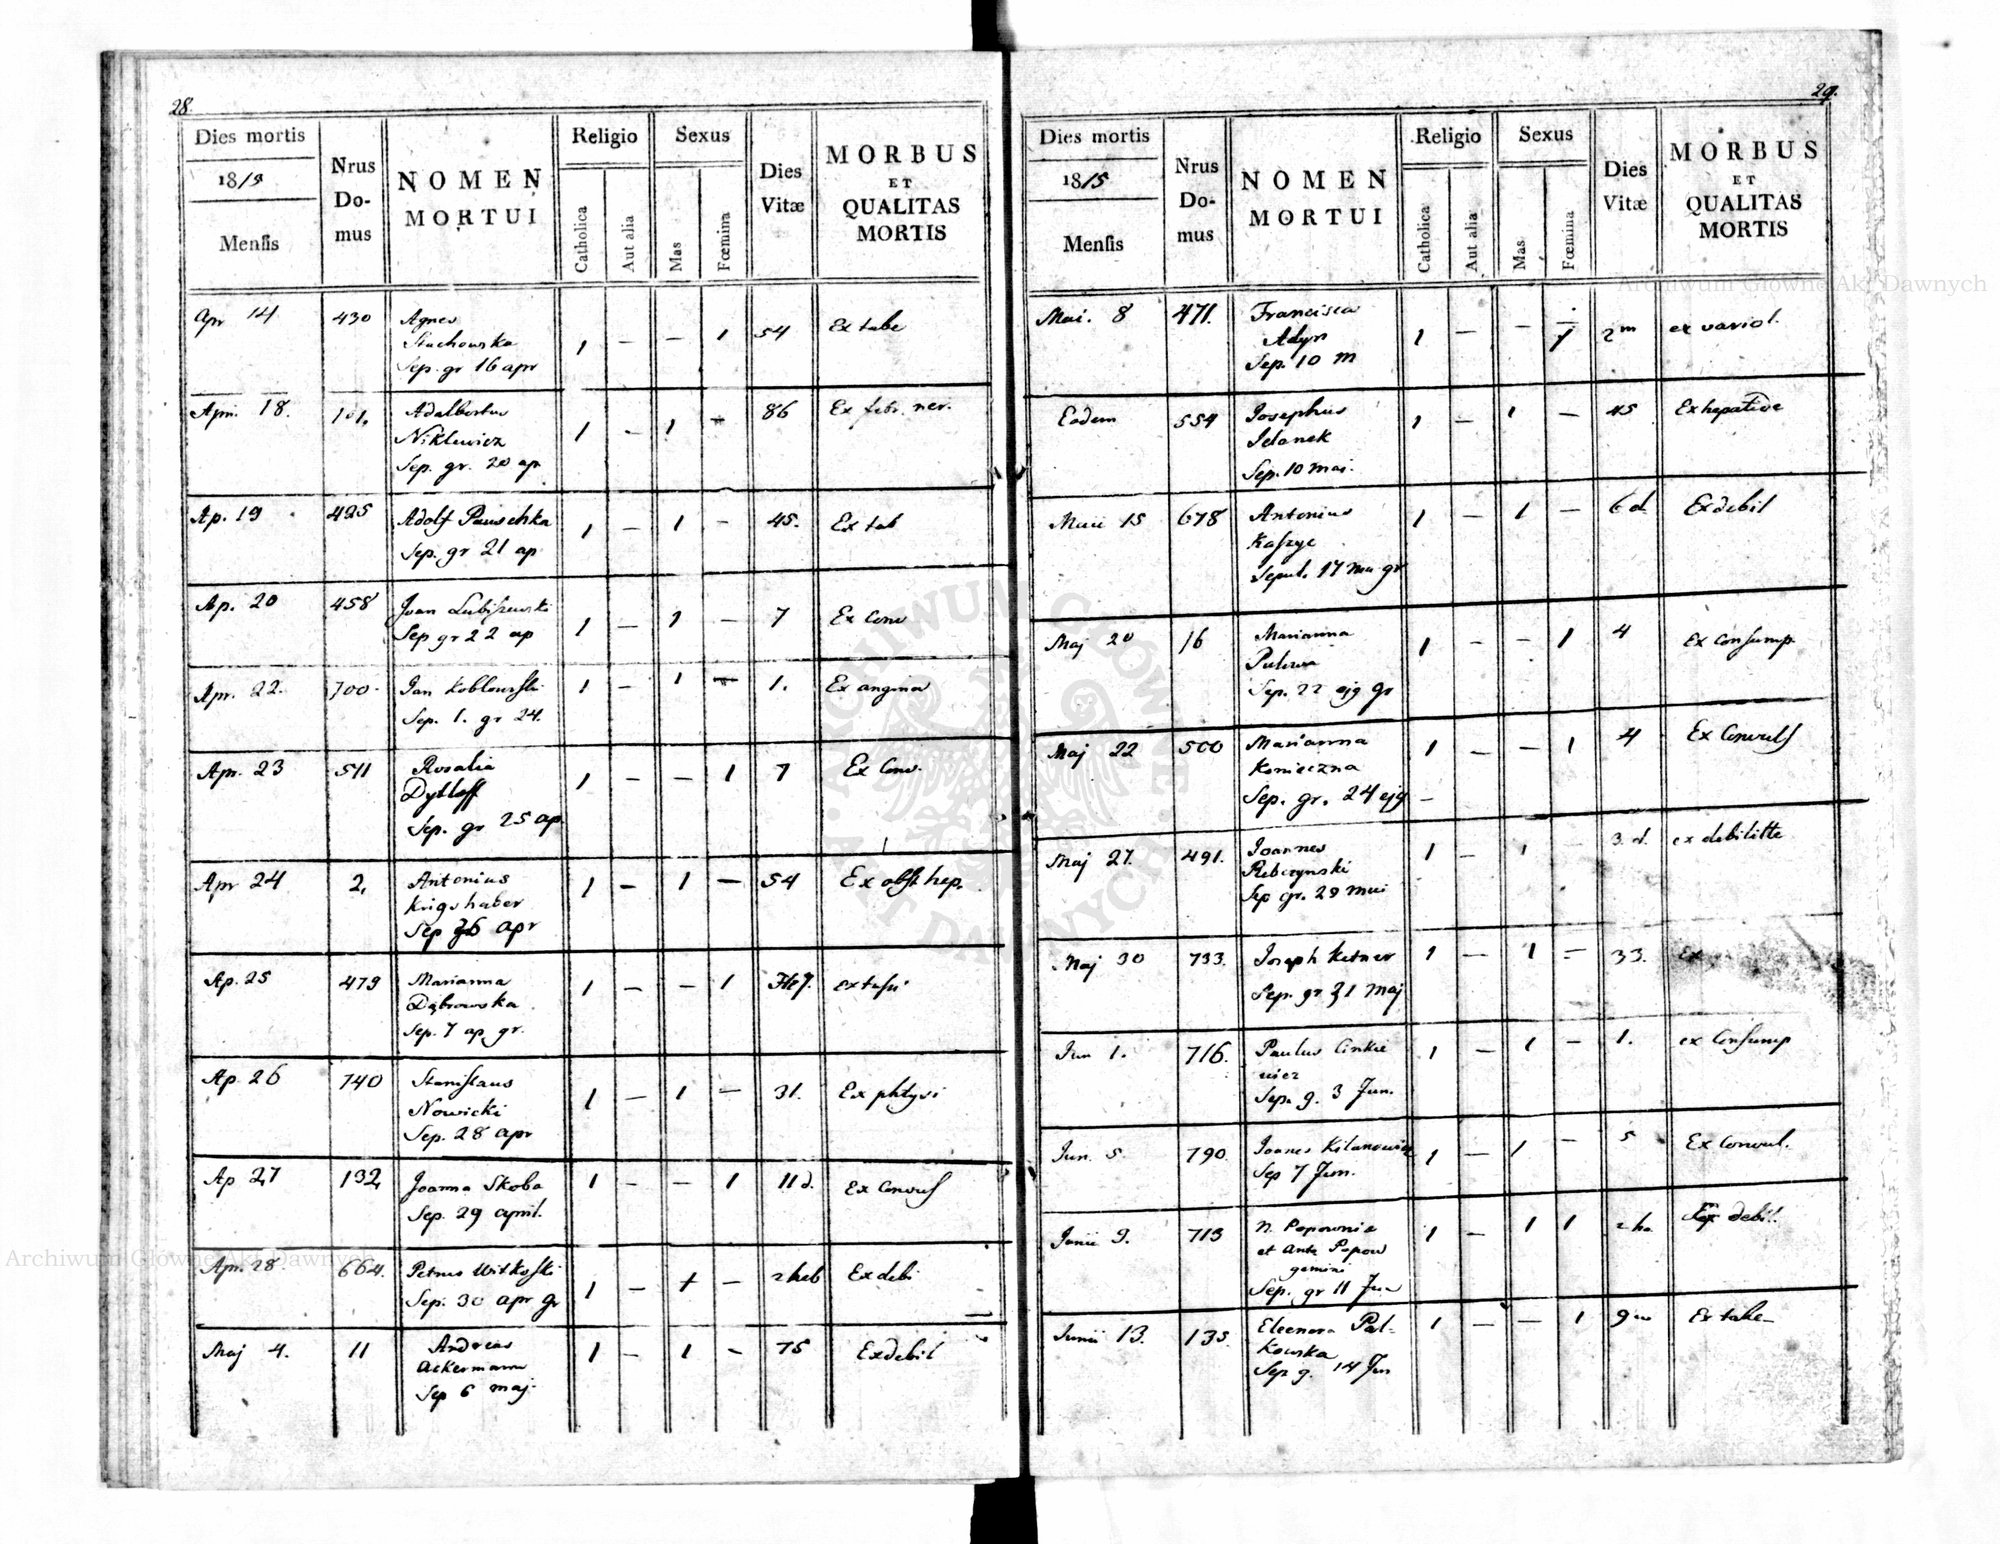 28.
Dies mortis
1815
Mensis
Nrus
Do-
mus
NOMEN
MORTUI
Religio
Catholica
Aut alia
Sexus
Mas
Fœmina
Dies
Vitæ
MORBUS
ET
QUALITAS
MORTIS
Apr 14 430 Agnes
Stachowska 1 – – 1 54 Ex tabe
Sep. gr 16 apr
Apri. 18. 101. Adalbertus 86 Ex febr. ner.
Niklewicz 1 – 1 –
Sep. gr. 20 ap
Ap. 19 425 Adolf Pauschka 1 – 1 – 45. Ex tab
Sep. gr 21 ap
Ap. 20 458 Joan Lubiszewski 1 – 1 – 7 Ex Conv
Sep gr 22 ap
Apr. 22. 700. Jan Koblowski 1 – 1 – 1. Ex angina
Sep. 1. gr 24.
Apr. 23 511 Rosalia 1 – – 1 7 Ex Conv.
Sep. gr 25 ap.
Apr 24 2, Antonius 1 – 1 – 54 Ex obst hep.
Krigshaber
Sep 26 apr
Ap. 25 479 Marianna 1 – – 1 ex tussi
Dąbrowska
Sep. 7 ap gr.
Ap. 26 740 Stanislaus
Nowicki 1 – 1 – 31. Ex phtysi
Sep. 28 apr
Ap 27 132, Joanna Skoba 1 – – 1 11 d. Ex Convuls
Sep. 29 april.
Apr. 28 664. Petrus Witkoski 1 – 1 – 2 heb Ex debi
Sep. 30 apr gr
Maj 4. 11 Andreas 1 – 1 – 75 Ex debil
Ackermann
Sep 6 maj.
29.
Dies mortis
1815
Mensis
Nrus
Do-
mus
NOMEN
MORTUI
Religio
Catholica
Aut alia
Sexus
Mas
Fœmina
Dies
Vitæ
MORBUS
ET
QUALITAS
MORTIS
Mai. 8 471. Francisca
Adyn 1 – – 1 2 m ex variol.
Sep. 10 m
Eodem 554 Josephus 1 – 1 – 45 Ex hepatide
Selanek
Sep. 10 mai.
Maii 15 678 Antonius 1 – 1 – 6 d Ex debil
Kaszyc
Sepul. 17 ma gr
Maj 20 16 Marianna 1 – – 1 4 Ex Consump.
Sep. 22 ejg gr
Maj 22 500 Marianna 1 – – 1 4 Ex Convuls
Konieczna
Sep. gr. 24 ejg –
Maj 27. 491. Joannes 1 – 1 – 3. d. ex debilitte
Rebczynski
Sep gr. 29 mai
Maj 30 733. Joseph Ketner 1 – 1 – 33. Ex
Sep. gr 31 maj
Jun 1. 716. Paulus Cinkie 1 – 1 – 1. ex Consump
wicz
Sep. g. 3 Jun.
Jun. 5 790. Joanes Kilanowicz 1 – 1 – 5 Ex Convul.
Sep 7 Jun.
Junii 9. 713 N. Popownia 1 – 1 1 2 ho Ex debil.
et Ante Popow
gemini
Sep. gr 11 Jun
Junii 13. 135. Eleonora Pal- 1 – – 1 Ex tabe
kowska
Sep g. 14 Jun
Archiwum Główne Akt Dawnych
Archiwum Główne Akt Dawnych
ARCHIWUM GŁÓWNE · AKT DAWNYCH ·